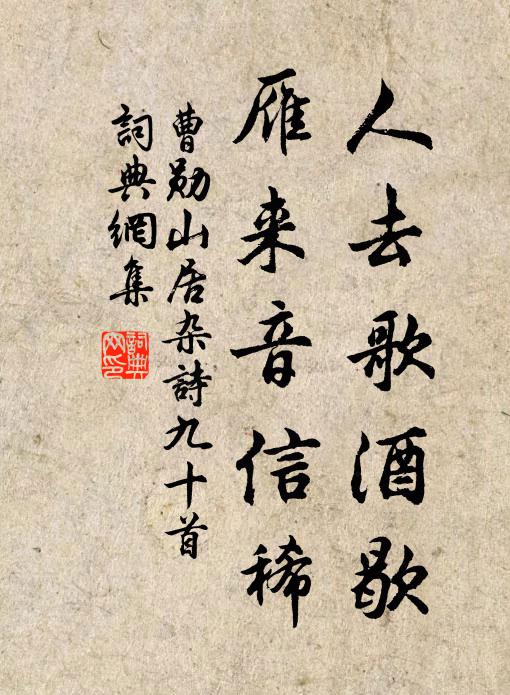 人去歌酒歇
雁来音信稀
曹勋山居杂詩九十首
詞典網集
詞典网印